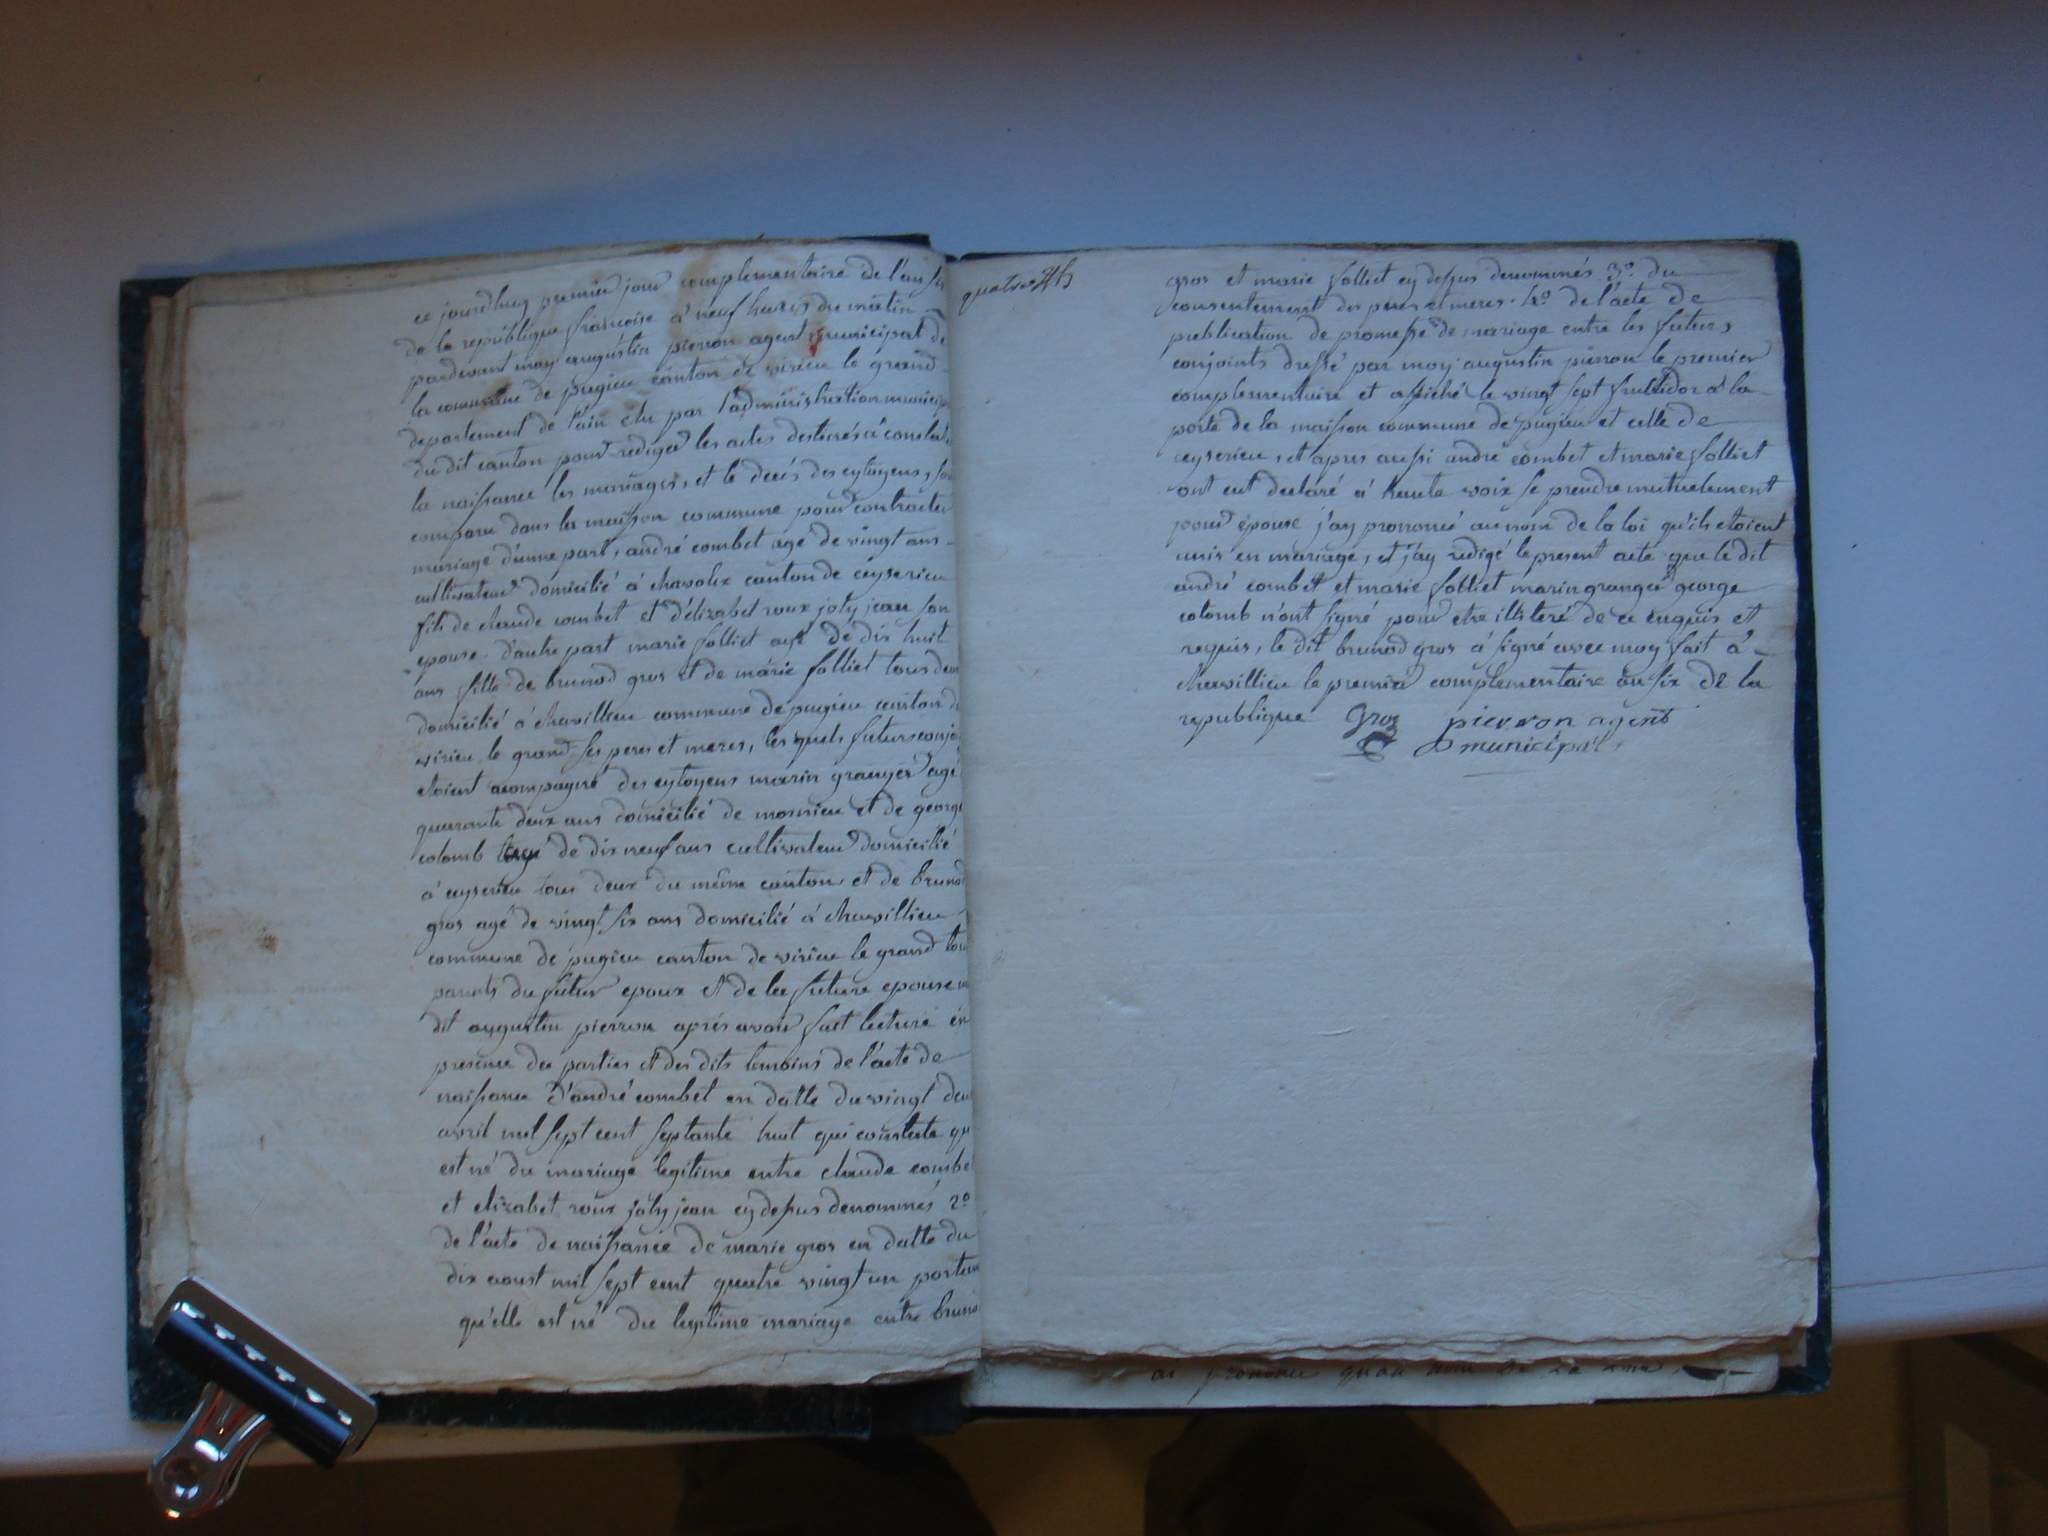 ce jourdhuy premier jour complementaire de l'an six
de la republique francoise à neuf heures du matin
pardevant moy augustin pierron agent municipal de
la commune de pugieu canton de virieu le grand
departement de l'ain elu par l'administration municip
du dit canton pour rediger les actes destinés à constater
la naissance les mariages, et le decés des cytoyens, son
comparu dans la maison commune pour contracter
mariage d'unne part, andré combet agé de vingt ans
cultivateur domicilié à chavolex canton de ceyserieu
fils de claude combet et d'élizabet roux joly jean son
epouse. d'autre part marie folliet agé de dix huit
ans fille de brunod gros et de marie folliet tous deux
domicilié à chavillieu commune de pugieu canton de
virieu le grand ses peres et meres, les quels futurs conjoi
etoient acompagné des cytoyens marin granger agé
quarante deux ans domicilié de mornieu et de george
colomb agé de dix neuf ans cultivateur domicilié
à ceyserieu tous deux du même canton et de brunod
gros agé de vingt six ans domicilié à chavillieu
commune de pugieu canton de virieu le grand tous
parents du futur epoux et de la future epouse
dit augustin pierron aprés avoir fait lecture en
presence des parties et des dits temoins de l'acte de
naissance d'andré combet en datte du vingt deux
avril mil sept cent septante huit qui constate qu
est né du mariage legitime entre claude combe
et elizabet roux joly jean cy dessus denommés 2º
de l'acte de naissance de marie gros en datte du
dix aoust mil sept cent quatre vingt un portan
qu'elle est né du legitime mariage entre bruno
quatre
gros et marie folliet cy dessus denommés 3º. du
consentement des peres et meres. 4º de l'acte de
publication de promesse de mariage entre les futurs
conjoints dressé par moy augustin pierron le premier
complementaire et affiché le vingt sept fructidor à la
porte de la maison commune de pugieu et celle de
ceyserieu, et apres aussi andré combet et marie folliet
ont eut declaré à haute voix se prendre mutuelement
pour epouse j'ay prononcé au nom de la loi qu'ils etoient
unis en mariage, et j'ay redigé le present acte que le dit
andré combet et marie folliet marin granger george
colomb n'ont signé pour etre illiteré de ce enquis et
requis, le dit brunod gros à signé avec moy fait à
chavillieu le premier complementaire an six de la
republique gros pierron agent
municipal
ai prononcé qu'au nom de la